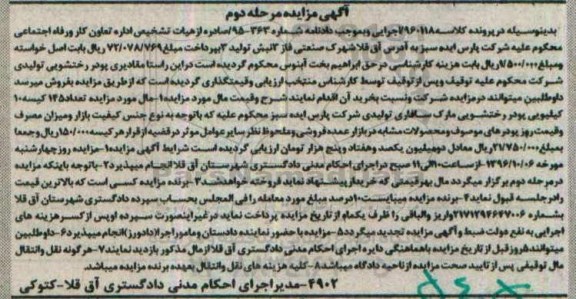 آگهی مزایده مرحله دوم
بدینوسیله در پرونده کلاسه ۹۶۰۱۱۸/اجرایی و بموجب دادنامه شماره ۳۶۲-۹۵ صادره از هیات تشخیص اداره تعاون کار و رفاه اجتماعی
محکوم علیه شرکت پارس ایده سبز به آدرس آق قلا شهرک صنعتی فاز ۲ نبش تولید ۲ بپرداخت مبلغ ۷۲/۰۷۸/۷۶۹ ریال بابت اصل خواسته
و مبلغ ۱/۵۰۰/۰۰۰ ریال بابت هزینه کارشناسی در حق ابراهیم بخت آبنوس محکوم گردیده است در این راستا مقادیری پودر رختشویی تولیدی
شرکت محکوم علیه توقیف و پس از توقیف توسط کارشناس منتخب ارزیابی و قیمتگذاری گردیده است که از طریق مزایده بفروش میرسد
داوطلبین میتوانند در مزایده شرکت و نسبت بخرید آن اقدام نمایند شرح و قیمت مال مورد مزایده ۱-مال مورد مزایده تعداد ۱۴۵ کیسه ۱۰
کیلویی پودر رختشویی مارک سافاری تولیدی شرکت پارس ایده سبز محکوم علیه که باتوجه به نوع جنس کیفیت بازار و میزان مصرف
و قیمت روز پودر های موصوف و محصولات مشابه در بازار عمده فروشی و ملحوظ نظر سایر عوامل موثر در قضیه از قرار هر کیسه ۱۵۰/۰۰۰ ریال و جمعا
بمبلغ ۲۱/۷۵۰/۰۰۰ ریال معادل دو میلیون یکصد و هفتاد و پنج هزار تومان ارزیابی گردیده است شرایط آگهی مزایده ۱-مزایده روز چهارشنبه
مورخه ۱۳۹۶/۱۰/۰۶ از ساعت ۱۰ الی ۱۱ صبح در اجرای احکام مدنی دادگستری شهرستان آق قلا انجام میپذیرد ۲-باتوجه باینکه مزایده
در مرحله دوم برگزار میگردد مال بهر قیمتی که خریدار پیشنهاد نماید فروخته خواهد شد ۳-برنده مزایده کسی است که بالاترین قیمت
را در جلسه قبول نماید ۴-برنده مزایده میبایست ۱۰ درصد مبلغ مورد معامله را فی المجلس بحساب سپرده دادگستری شهرستان آق قلا
بشماره ۲۱۷۱۲۹۴۶۴۷۰۰۶ واریز و الباقی را ظرف یکماه از تاریخ مزایده پرداخت نماید در غیر اینصورت سپرده او پس از کسر هزینه های
اجرایی به نفع دولت ضبط و آگهی مزایده تجدید میگردد ۵-مزایده با حضور نماینده دادستان و مامور اجرا (دادورز) انجام میپذیرد ۶-داوطلبین
میتوانند ۵ روز قبل از تاریخ مزایده با هماهنگی دایره اجرای احکام مدنی دادگستری آق قلا از مال مذکور بازدید نمایند ۷-هر گونه نقل و انتقال
مال توقیفی پس از تایید صحت مزایده از ناحیه دادگاه میباشد ۸-کلیه هزینه های نقل و انتقال بعهده برنده مزایده میباشد.
۴۹۰۲-مدیر اجرای احکام مدنی دادگستری آق قلا-کتوکی